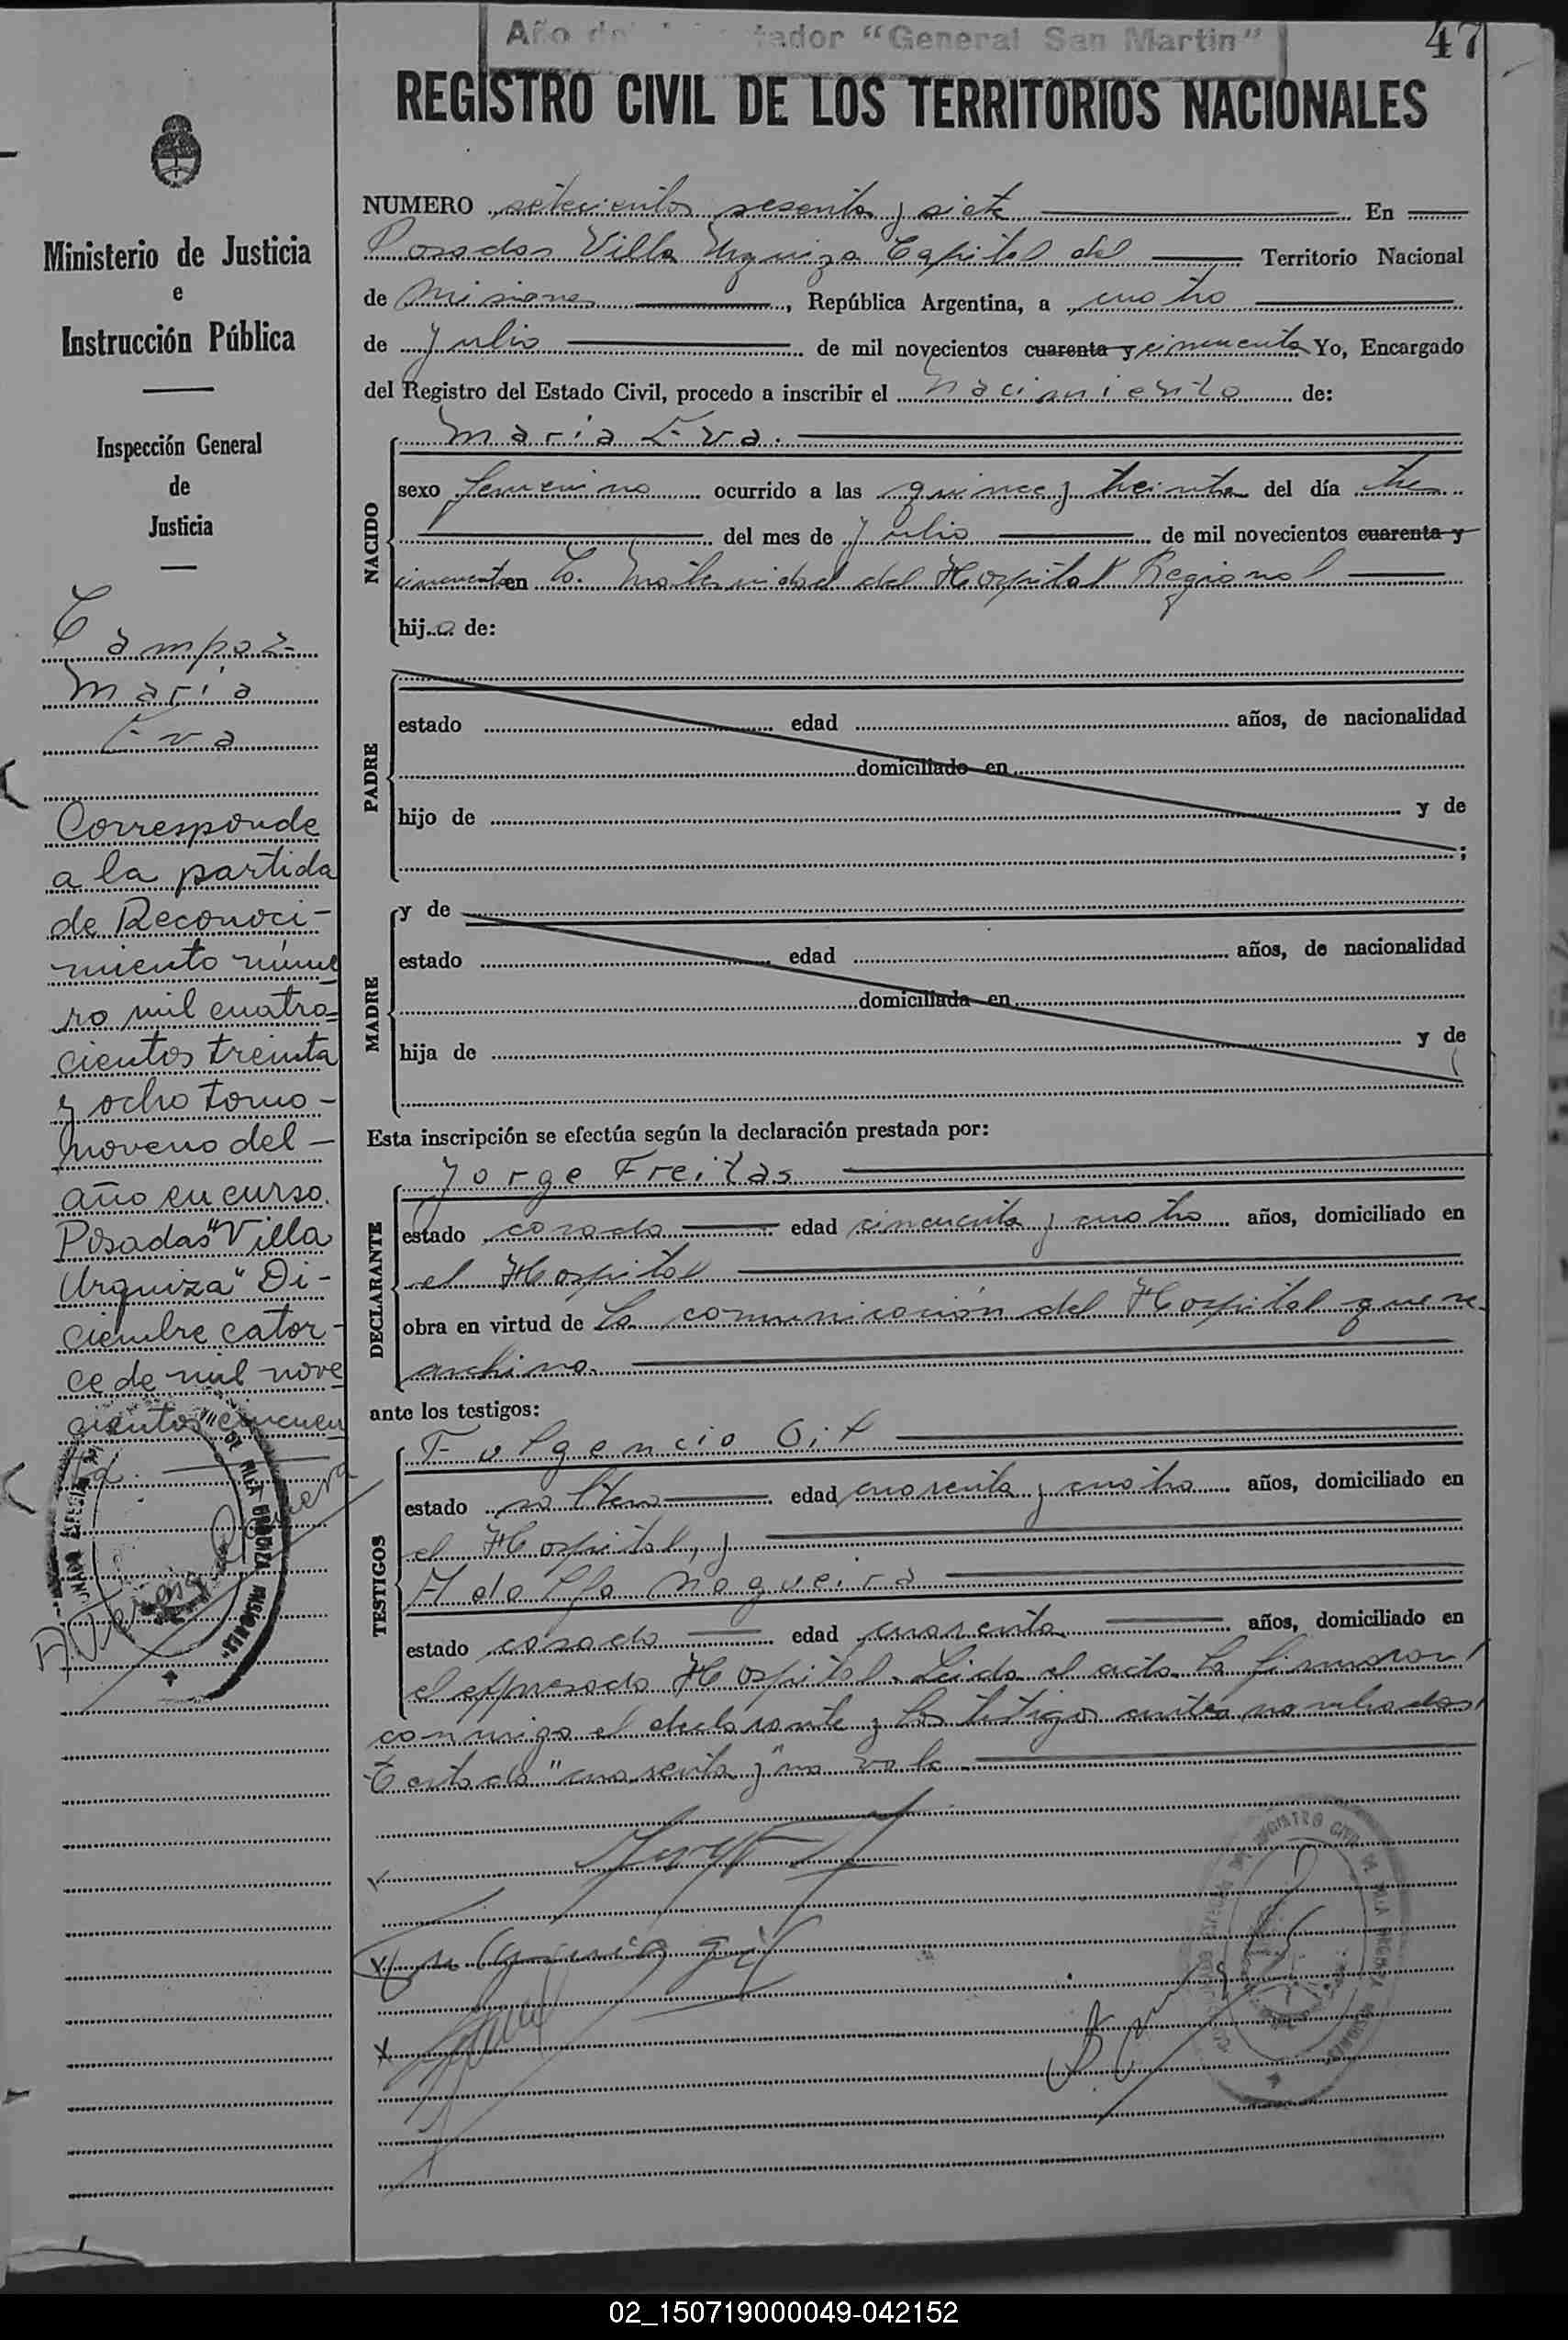 Año del Libertador "General San Martin"
47
REGISTRO CIVIL DE LOS TERRITORIOS NACIONALES
Ministerio de Justicia
e
Instrucción Pública
Inspección General
de
Justicia
Campoz
Maria
Eva
Corresponde
a la partida
de Reconoci-
miento núme
ro mil cuatro-
cientos treinta
y ocho tomo-
noveno del-
año en curso.
Posadas "Villa
Urquiza" Di-
ciembre cator-
ce de mil nove
cientos cincuen
ta.
NUMERO setecientos sesenta y siete En
Posadas Villa Urquiza Capital del Territorio Nacional
de Misiones, República Argentina, a cuatro
de Julio de mil novecientos cuarenta y cincuenta Yo, Encargado
del Registro del Estado Civil, procedo a inscribir el Nacimiento de:
NACIDO
Maria Eva.
sexo femenino ocurrido a las quince y treinta del día tres
del mes de Julio de mil novecientos cuarenta y
cincuenta en La Maternidad del Hospital Regional
hija de:
PADRE
estado edad años, de nacionalidad
domiciliado en
hijo de y de
;
MADRE
y de
estado edad años, de nacionalidad
domiciliada en
hija de y de
Esta inscripción se efectúa según la declaración prestada por:
DECLARANTE
Jorge Freitas
estado casado edad cincuenta y cuatro años, domiciliado en
el Hospital
obra en virtud de la comunicación del Hospital que se
archiva.
ante los testigos:
TESTIGOS
Fulgencio Gil
estado soltero edad cuarenta y cuatro años, domiciliado en
el Hospital, y
Adolfo Nogueira
estado casado edad cuarenta años, domiciliado en
el expresado Hospital. Leida el acta la firmaron
conmigo el declarante y los testigos antes nombrados
Testado "cuarenta y" no vale
Fulgencio Gil
02_150719000049-042152